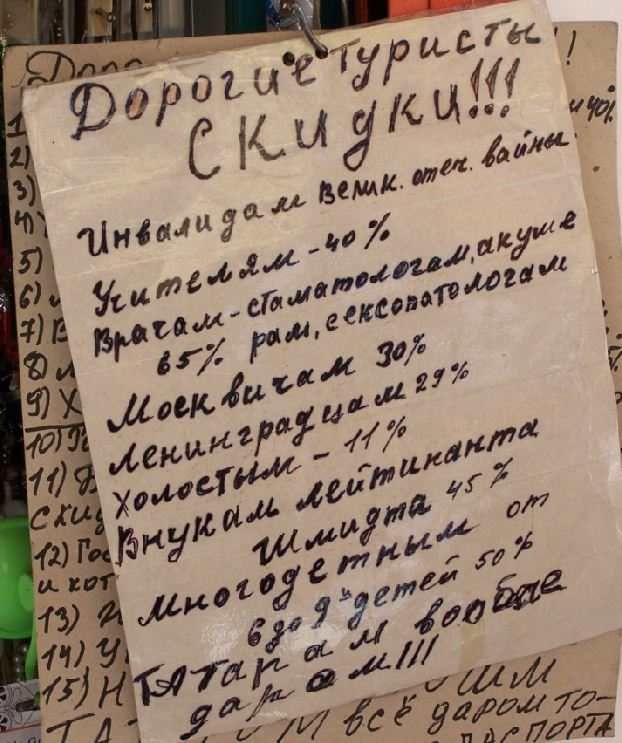 ДОРОГИЕ ТУРИСТЫ
СКИДКИ!!!
Инвалидам велик. отеч. вайны
Учителям - 40%
Врачам - стаматологам, акуше
65% рам, сексопатологам
Москвичам 30%
Ленинградцам 29%
Холостым - 11%
Внукам лейтинанта
Шмидта 45%
многодетным от
6 до 9 детей 50%
ТАТАРАМ вообще
даром!!!
2)
3)
5)
6)
7) В
8)
9) Х
10)
11)
скид
12) Гос
и хот
13)
14) У
15) Н
всё даром то-
ПАСПОРТА